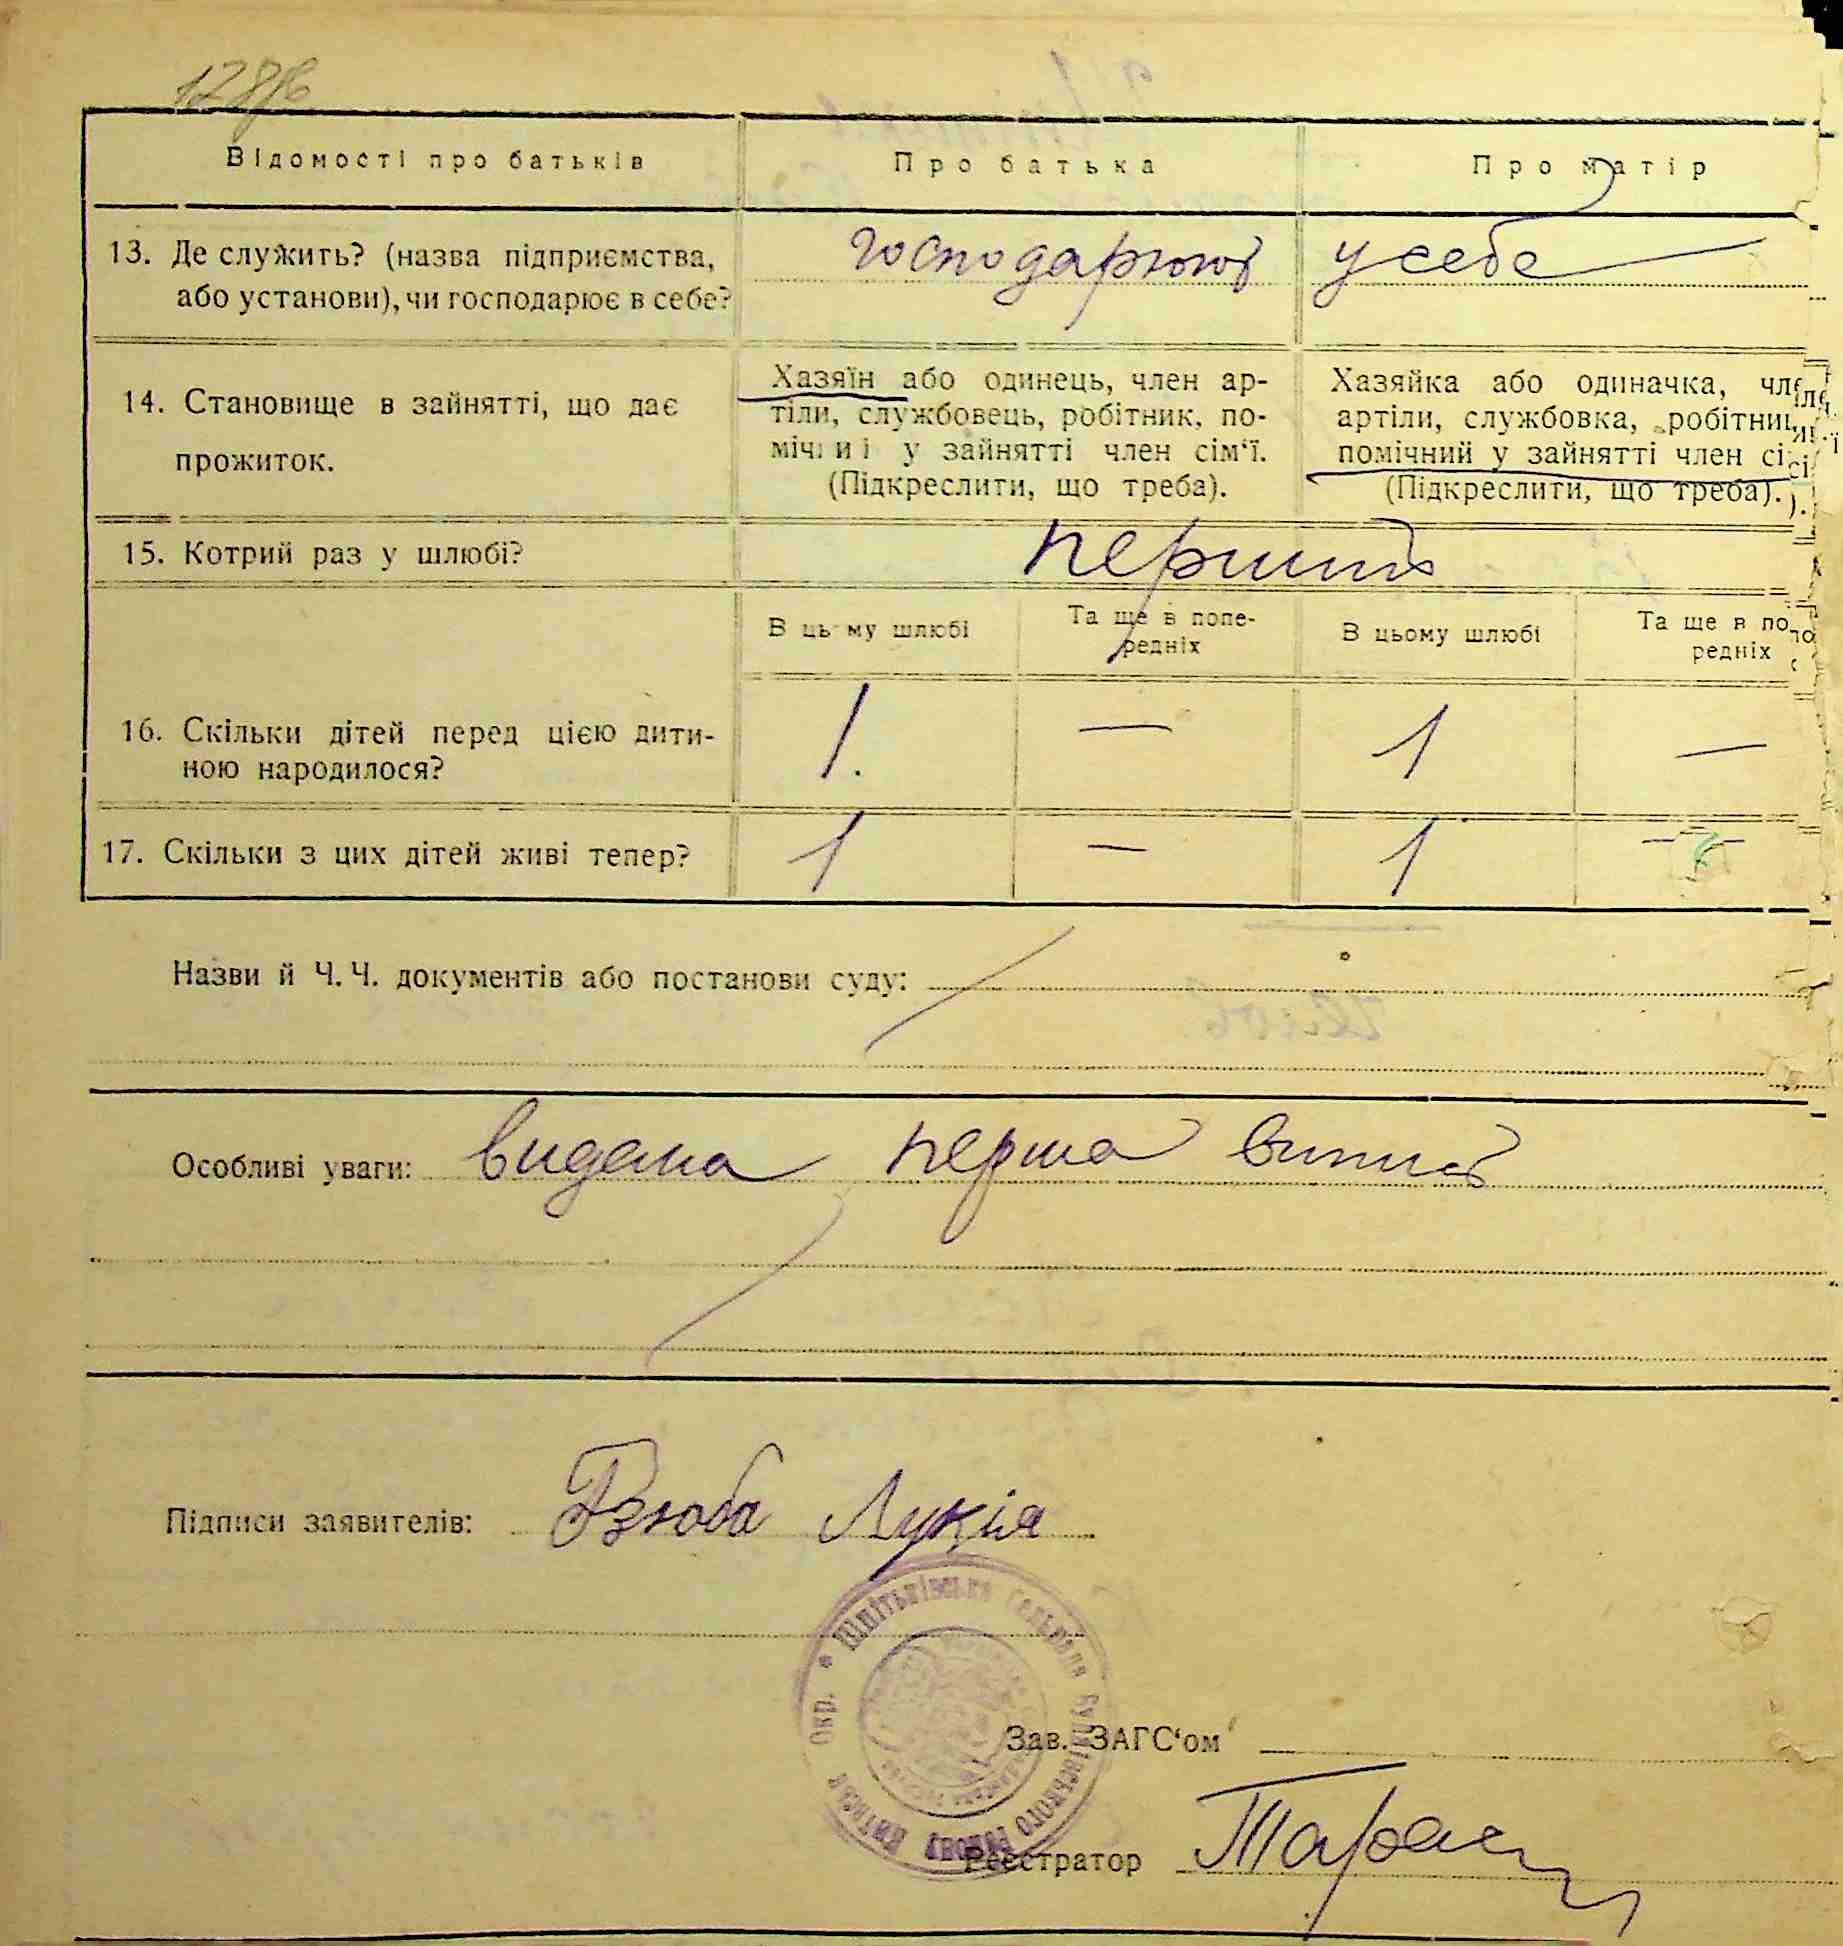 Відомості про батьків Про батька Про матір
13. Де служить? (назва підприємства, або установи), чи господарює в себе?
господарюють у себе
14. Становище в зайнятті, що дає прожиток.
Хазяїн або одинець, член ар-
тіли, службовець, робітник, по-
мічний у зайнятті член сім‘ї.
(Підкреслити, що треба).
Хазяйка або одиначка,
артіли, службовка,
помічний у зайнятті член
(Підкреслити, що треба).
15. Котрий раз у шлюбі?
перший
В цьому шлюбі
Та ще в попе-
редніх
В цьому шлюбі
Та ще в по
редніх
16. Скільки дітей перед цією дити-
ною народилося?
1. — 1 —
17. Скільки з цих дітей живі тепер? 1 — 1 —
Назви й Ч. Ч. документів або постанови суду:
Особливі уваги: видана перша випис
Підписи заявителів: Дзюба Лукія
Шпітьківська Сельрада Будаївського Району Київська Окр.
Зав. ЗАГС‘ом
Реєстратор